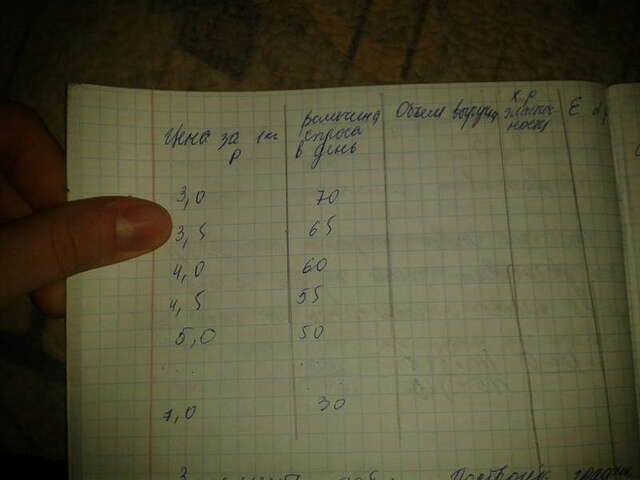 Цена за 1 кг
P
Величина
спроса
в день
Объем выручк
к.р
эластич-
ности
E d p
3,0 70
3,5 65
4,0 60
4,5 55
5,0 50
. . . . .
7,0 30